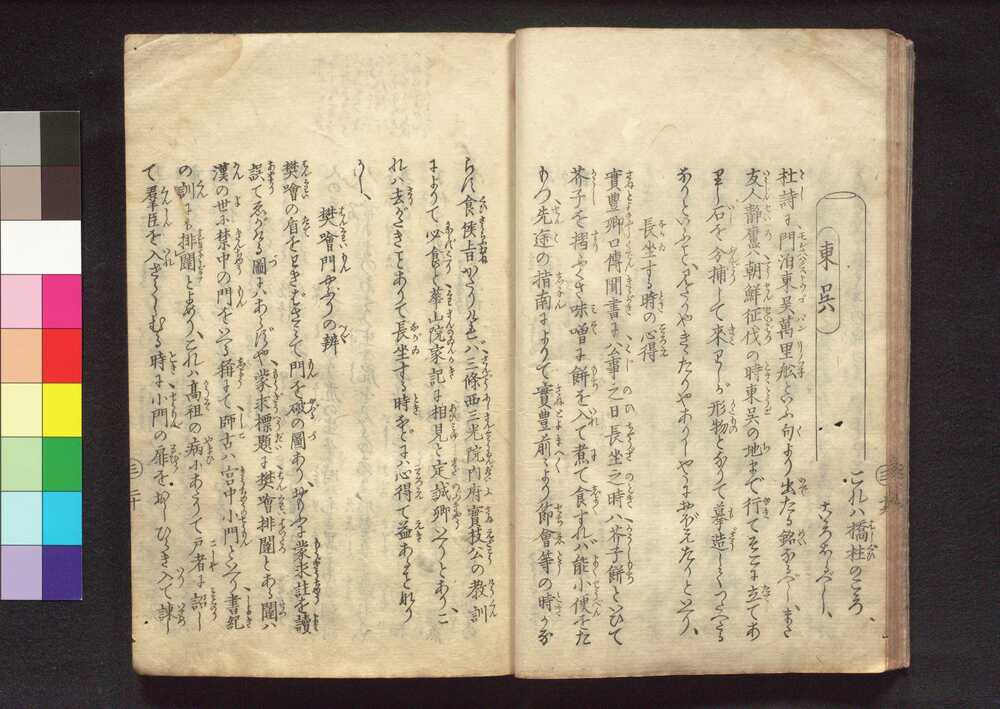 東呉
これハ橋柱のころ
杜詩に門泊東吴萬里舩といふ句より出たる銘なるべし、また
友人静廬ハ朝鮮征伐の時東吴の地まで行てそこに立てあ
りし石を分捕して来りしが形物となりて摹造しくつたへたる
ありといふ
長坐する時の心得
實豊卿口傳聞書に公事之日長坐之時ハ芥子餅といひて
芥子を摺ぶくさ味噌に餅を入て煮て食すれハ能小便をた
もつ、先途の指南によりて實豊前〻より節會等の時かな
らず食侯
三條西三光院内府實枝公の教訓
によりて必食と華山院家記に相見と定誠卿いへりとあり、こ
れハ去がたきことありて長坐する時などハ心得て益あることなり
かし、
樊噲門やぶりの辨
樊噲の盾をわきばさみて門を破の圖あり、おもふに蒙求註を讀
誤てゑがける圖にハあらずや蒙求標題に樊噲排闥とある闥ハ
漢の世に禁中の門をいへる稱にて師古ハ宮中小門といへり、書紀
の訓にも排闥とよめり、これハ髙祖の病にありて戸者に詔し
て羣臣を入ざらしむる時に小門の扉をおしひらき入て諫し